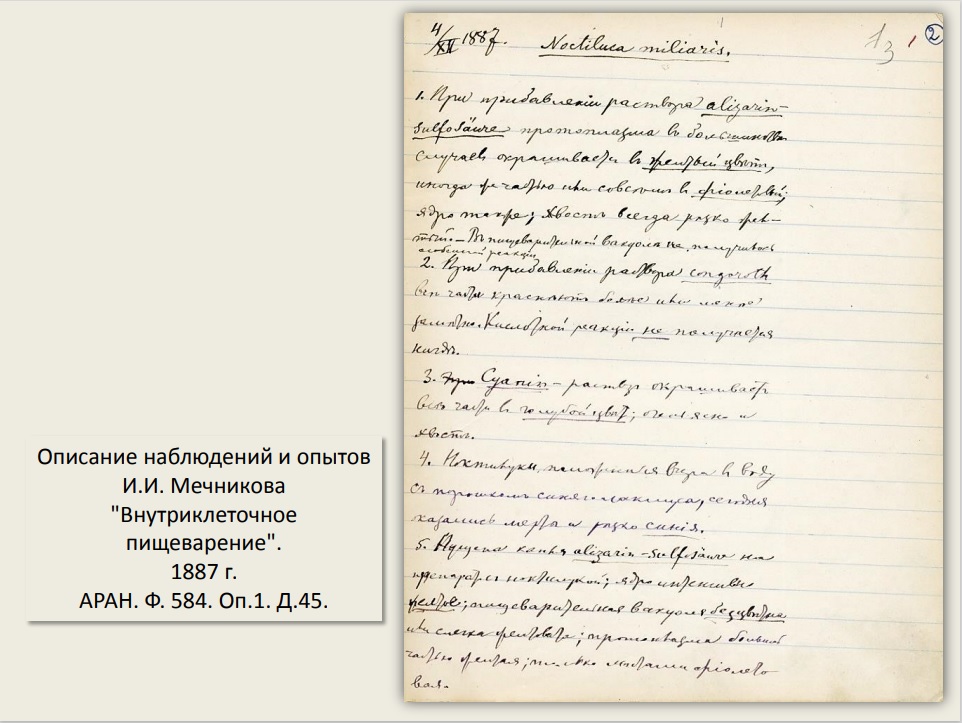 Описание наблюдений и опытов
И.И. Мечникова
"Внутриклеточное
пищеварение".
1887 г.
АРАН. Ф. 584. Оп.1. Д.45.
4/XII 1887.
Noctiluca miliaris.
13
2
1. При прибавленіи раствора alizarin-
sulfosäure протоплазма въ большинствѣ
случаевъ окрашивается въ желтый цвѣтъ,
иногда же частью или совсѣмъ въ фіолетовый;
ядро также; хвостъ всегда рѣзко жел-
тый. – Въ пищеварительной вакуолѣ не получилось
особенной реакціи.
2. При прибавленіи раствора congoroth
всѣ части краснѣютъ болѣе или менѣе
замѣтно. Кислотной реакціи не получается
нигдѣ.
3. Cyanin – растворъ окрашиваетъ
всѣ части въ голубой цвѣтъ; и
хвостъ.
4. Ноктилуки, вчера въ воду
съ порошкомъ синяго лакмуса, сегодня
оказались мертвы и рѣзко синія.
5. капля alizarin-sulfosäure на
препаратъ съ ноктилукой; ядро интенсивно
желтое; пищеварительная вакуоля безцвѣтна
или слегка желтовата; протоплазма большей
частью желтая; только мѣстами фіолето-
вая.